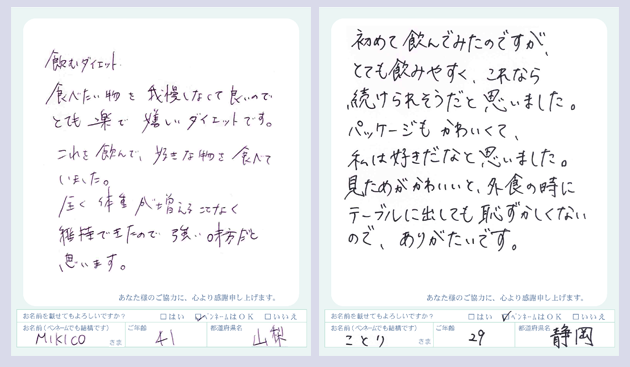 飲むダイエット
食べたい物を我慢しなくて良いので
とても楽で嬉しいダイエットです。
これを飲んで、好きな物を食べて
いました。
全く体重が増えることなく
維持できたので強い味方だと
思います。
あなた様のご協力に、心より感謝申し上げます。
お名前を載せてもよろしいですか? □はい ☑ペンネームはOK □いいえ
お名前(ペンネームでも結構です) ご年齢 都道府県名
MIKICO さま 41 山梨
初めて飲んでみたのですが、
とても飲みやすく、これなら
続けられそうだと思いました。
パッケージもかわいくて、
私は好きだなと思いました。
見ためがかわいいと、外食の時に
テーブルに出しても恥ずかしくない
ので、ありがたいです。
あなた様のご協力に、心より感謝申し上げます。
お名前を載せてもよろしいですか? □はい ☑ペンネームはOK □いいえ
お名前(ペンネームでも結構です) ご年齢 都道府県名
ことり さま 29 静岡